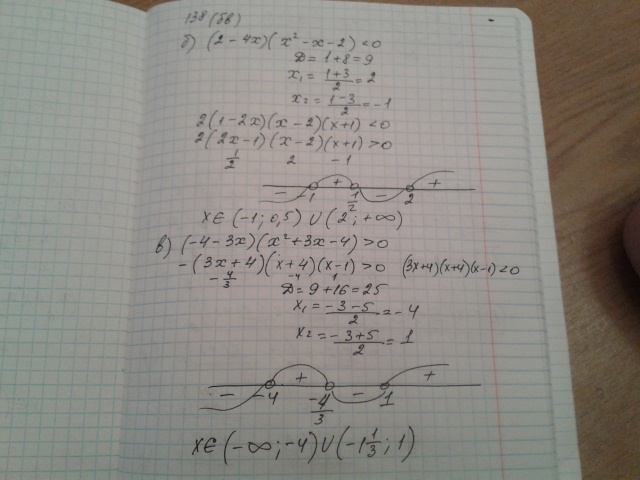 138 (бв)
б) (2 - 4x)(x² - x - 2) < 0
D = 1 + 8 = 9
x₁ = (1+3)/2 = 2
x₂ = (1-3)/2 = -1
2(1 - 2x)(x - 2)(x+1) < 0
2(2x - 1)(x - 2)(x+1) > 0
1/2 2 -1
- + - +
-1 1/2 2
x ∈ (-1; 0,5) ∪ (2; +∞)
в) (-4 - 3x)(x² + 3x - 4) > 0
-(3x + 4)(x + 4)(x - 1) > 0 (3x+4)(x+4)(x-1) < 0
-4/3 -4 1
D = 9 + 16 = 25
x₁ = (-3-5)/2 = -4
x₂ = (-3+5)/2 = 1
- + - +
-4 -4/3 1
x ∈ (-∞; -4) ∪ (-1 1/3; 1)